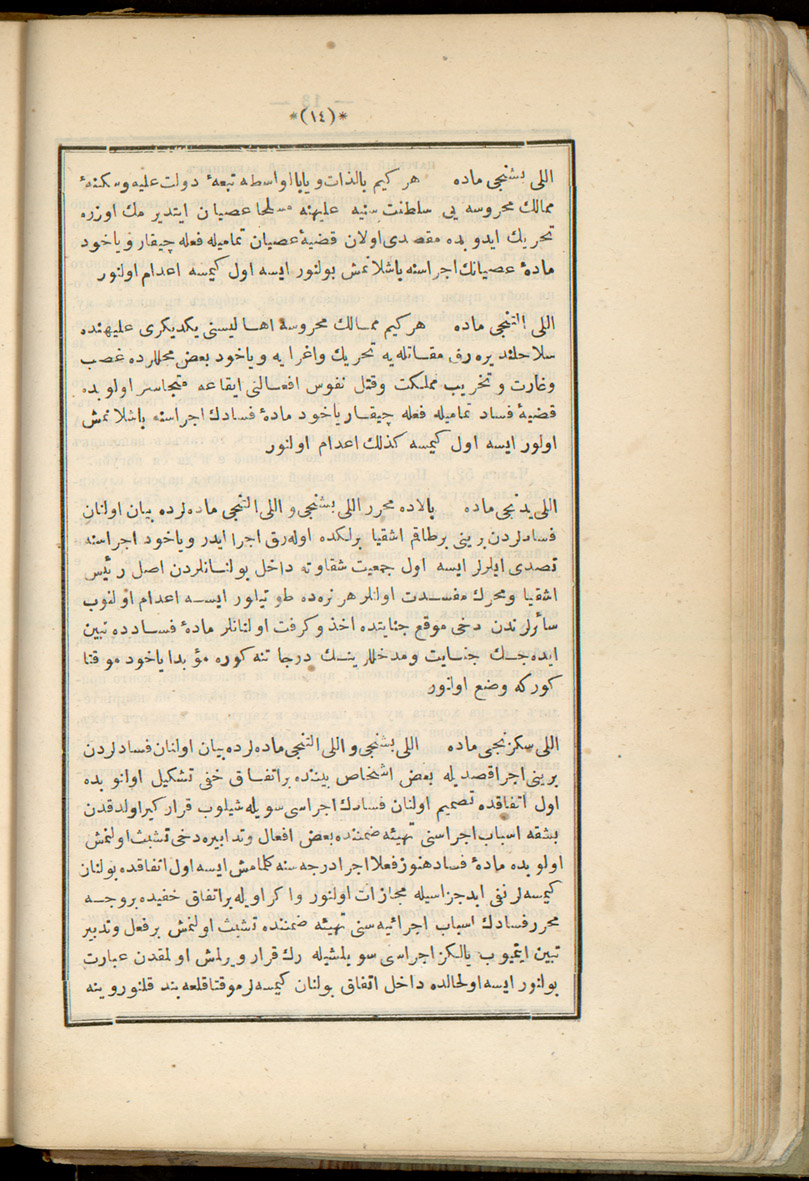 *(١٤)*
اللی بشنجی ماده هر کیم بالذات ویا بالواسطه تبعهٔ دولت علیه وسکنهٔ
ممالك محروسه یی سلطنت سنیه علیهنه مسلحا عصیان ایتدیرمك اوزره
تحریك ایدوبده مقصدی اولان قضیهٔ عصیان تمامیله فعله چیقار ویاخود
مادهٔ عصیانك اجراسنه باشلانمش بولنور ایسه اول کیمسه اعدام اولنور
اللی التنجی ماده هر کیم ممالك محروسه اهالیسنی یکدیکری علیهنده
سلاحلندیره رق مقاتله یه تحریك واغرایه ویاخود بعض محللرده غصب
وغارت و تخریب مملکت وقتل نفوس افعالنی ایقاعه متجاسر اولوبده
قضیهٔ فساد تمامیله فعله چیقار یاخود مادهٔ فسادك اجراسنه باشلانمش
اولور ایسه اول کیمسه کذلك اعدام اولنور
اللی یدنجی ماده بالاده محرر اللی بشنجی و اللی التنجی ماده لرده بیان اولنان
فسادلردن برینی برطاقم اشقیا برلکده اوله رق اجرا ایدر ویاخود اجراسنه
تصدی ایلرلر ایسه اول جمعیت شقاوته داخل بولنانلردن اصل رئیس
اشقیا ومحرك مفسدت اولانلر هر نره ده طوتیلور ایسه اعدام اولنوب
سائرلرندن دخی موقع جنایتده اخذ وکرفت اولنانلر مادهٔ فسادده تبین
ایده جك جنایت ومدخللرینك درجاتنه کوره مؤبدا یاخود موقتا
کورکه وضع اولنور
اللی سکزنجی ماده اللی بشنجی و اللی التنجی ماده لرده بیان اولنان فسادلردن
برینی اجرا قصدیله بعض اشخاص بیننده براتفاق خفی تشکیل اولنوبده
اول اتفاقده تصمیم اولنان فسادك اجراسی سویله شیلوب قرارکیر اولدقدن
بشقه اسباب اجراسنی تهیئه ضمننده بعض افعال وتدابیره دخی تشبث اولنمش
اولوبده مادهٔ فساد هنوز فعلا اجرا درجه سنه کلمامش ایسه اول اتفاقده بولنان
کیمسه لر نفی ابد جزاسیله مجازات اولنور واکر اویله براتفاق خفیده بروجه
محرر فسادك اسباب اجرائیه سنی تهیئه ضمننده تشبث اولنمش برفعل وتدبیر
تبین ایتمیوب یالکز اجراسی سویلمشیله رك قرار ویرلمش اولمقدن عبارت
بولنور ایسه اولحالده داخل اتفاق بولنان کیمسه لر موقتا قلعه بند قلنور وینه